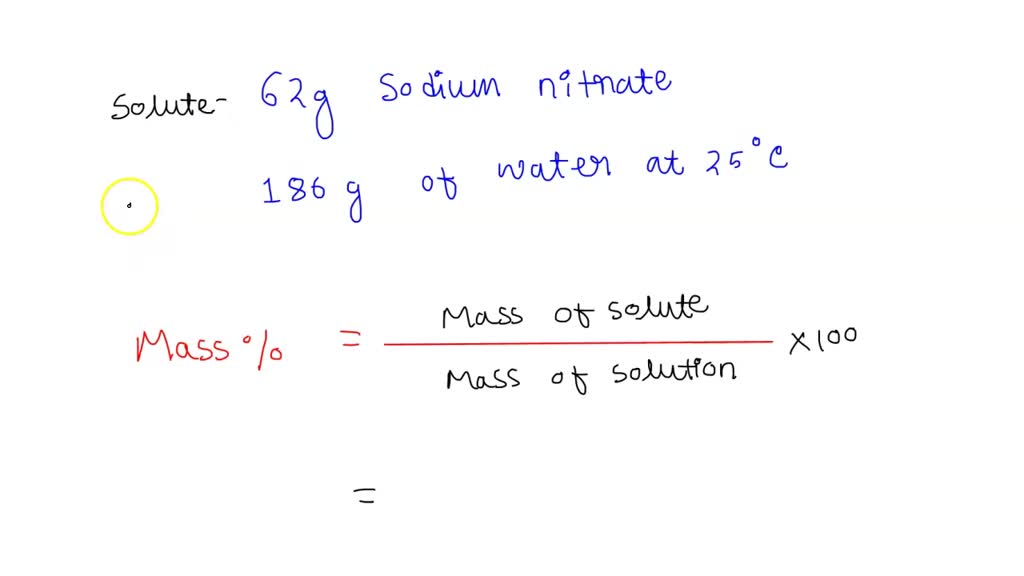 Solute- 62g Sodium nitrate
186 g of water at 25°C
Mass % = Mass of solute / Mass of solution × 100
=